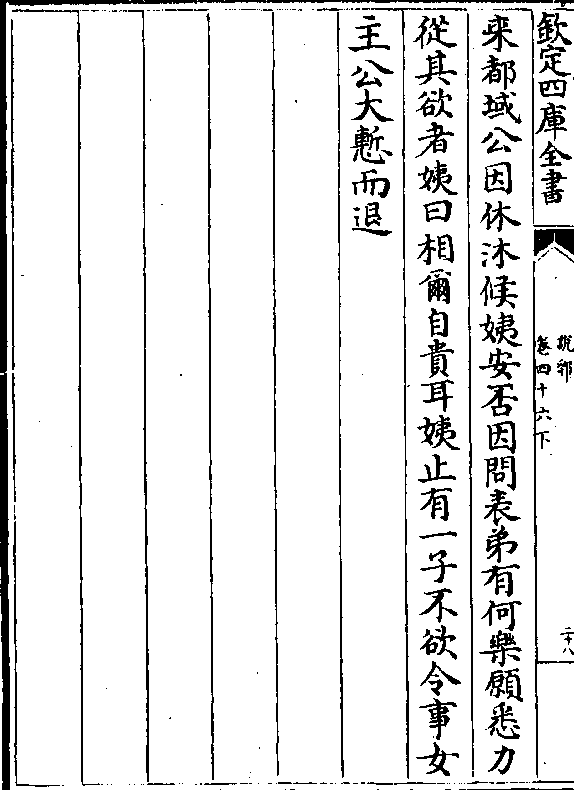 欽定四庫全書
說郛
卷四十六下
二十八
来都城公因休沐候姨安否因問表弟有何樂願悉力
從其欲者姨曰相爾自貴耳姨止有一子不欲令事女
主公大慙而退